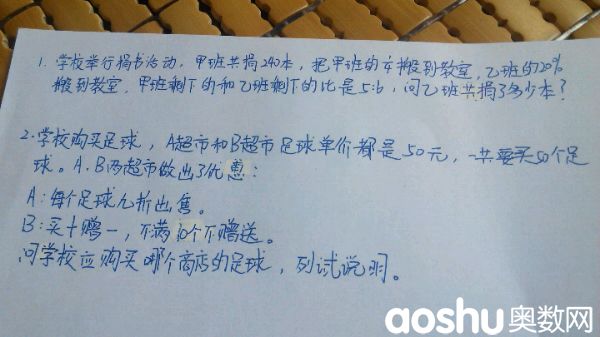 1. 学校举行捐书活动, 甲班共捐240本, 把甲班的 搬到教室, 乙班的20%
搬到教室, 甲班剩下的和乙班剩下的比是5:6, 问乙班共捐了多少本?
2. 学校购买足球, A超市和B超市足球单价都是50元, 一共要买50个足
球。A.B两超市做出了优惠:
A: 每个足球九折出售。
B: 买十赠一, 不满10个不赠送。
问学校应购买哪个商店的足球, 列试说明。
aoshu奥数网